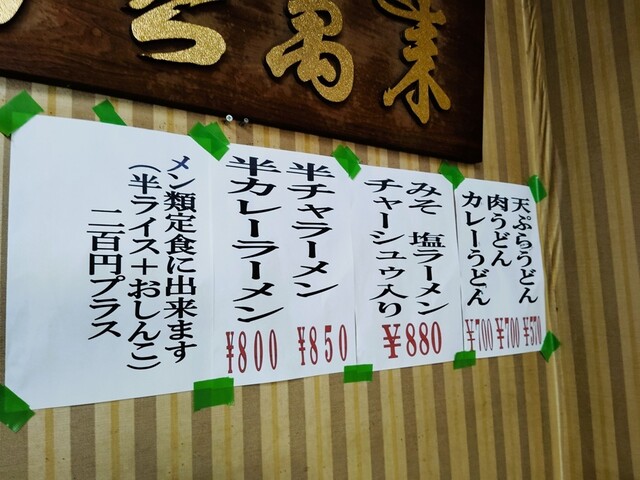 天ぷらうどん
肉うどん
カレーうどん
¥700 ¥700 ¥570
みそ 塩ラーメン
チャーシュウ入り
¥880
半チャラーメン
半カレーラーメン
¥800 ¥850
メン類定食に出来ます
(半ライス+おしんこ)
二百円プラス